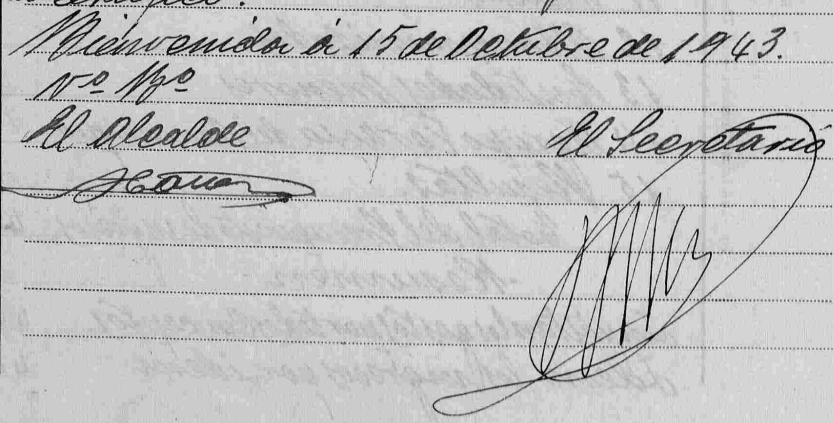 Bienvenida á 15 de Octubre de 1943.
Vº Bº
El Alcalde
El Secretario